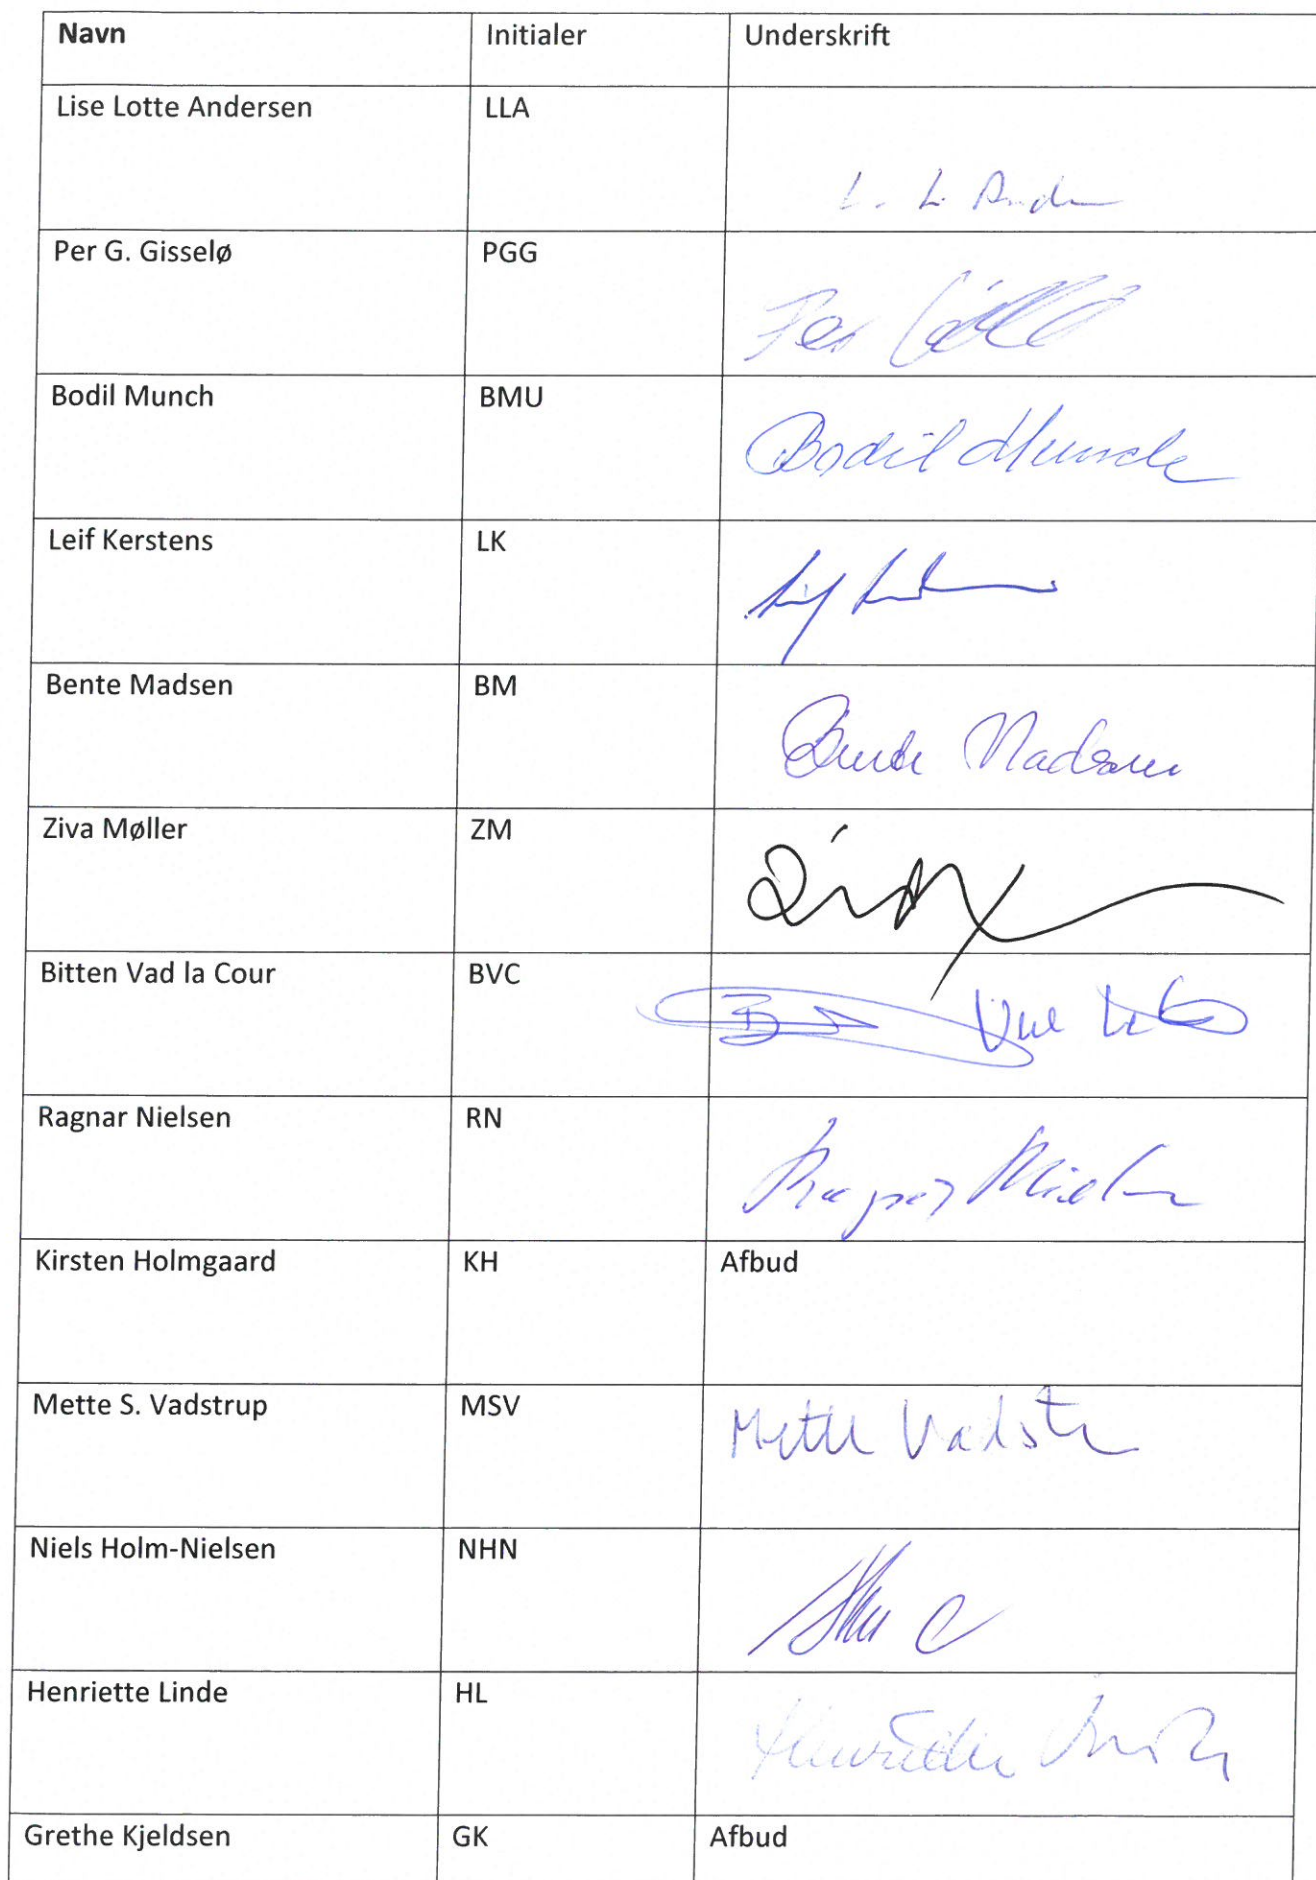 Navn Initialer Underskrift
Lise Lotte Andersen LLA
L. L. Ander
Per G. Gisselø PGG
Per
Bodil Munch BMU
Bodil Munch
Leif Kerstens LK
Bente Madsen BM
Bente Madsen
Ziva Møller ZM
Bitten Vad la Cour BVC
Ragnar Nielsen RN
Ragnar Nielsen
Kirsten Holmgaard KH Afbud
Mette S. Vadstrup MSV
Mette Vadst
Niels Holm-Nielsen NHN
Henriette Linde HL
Henriette
Grethe Kjeldsen GK Afbud